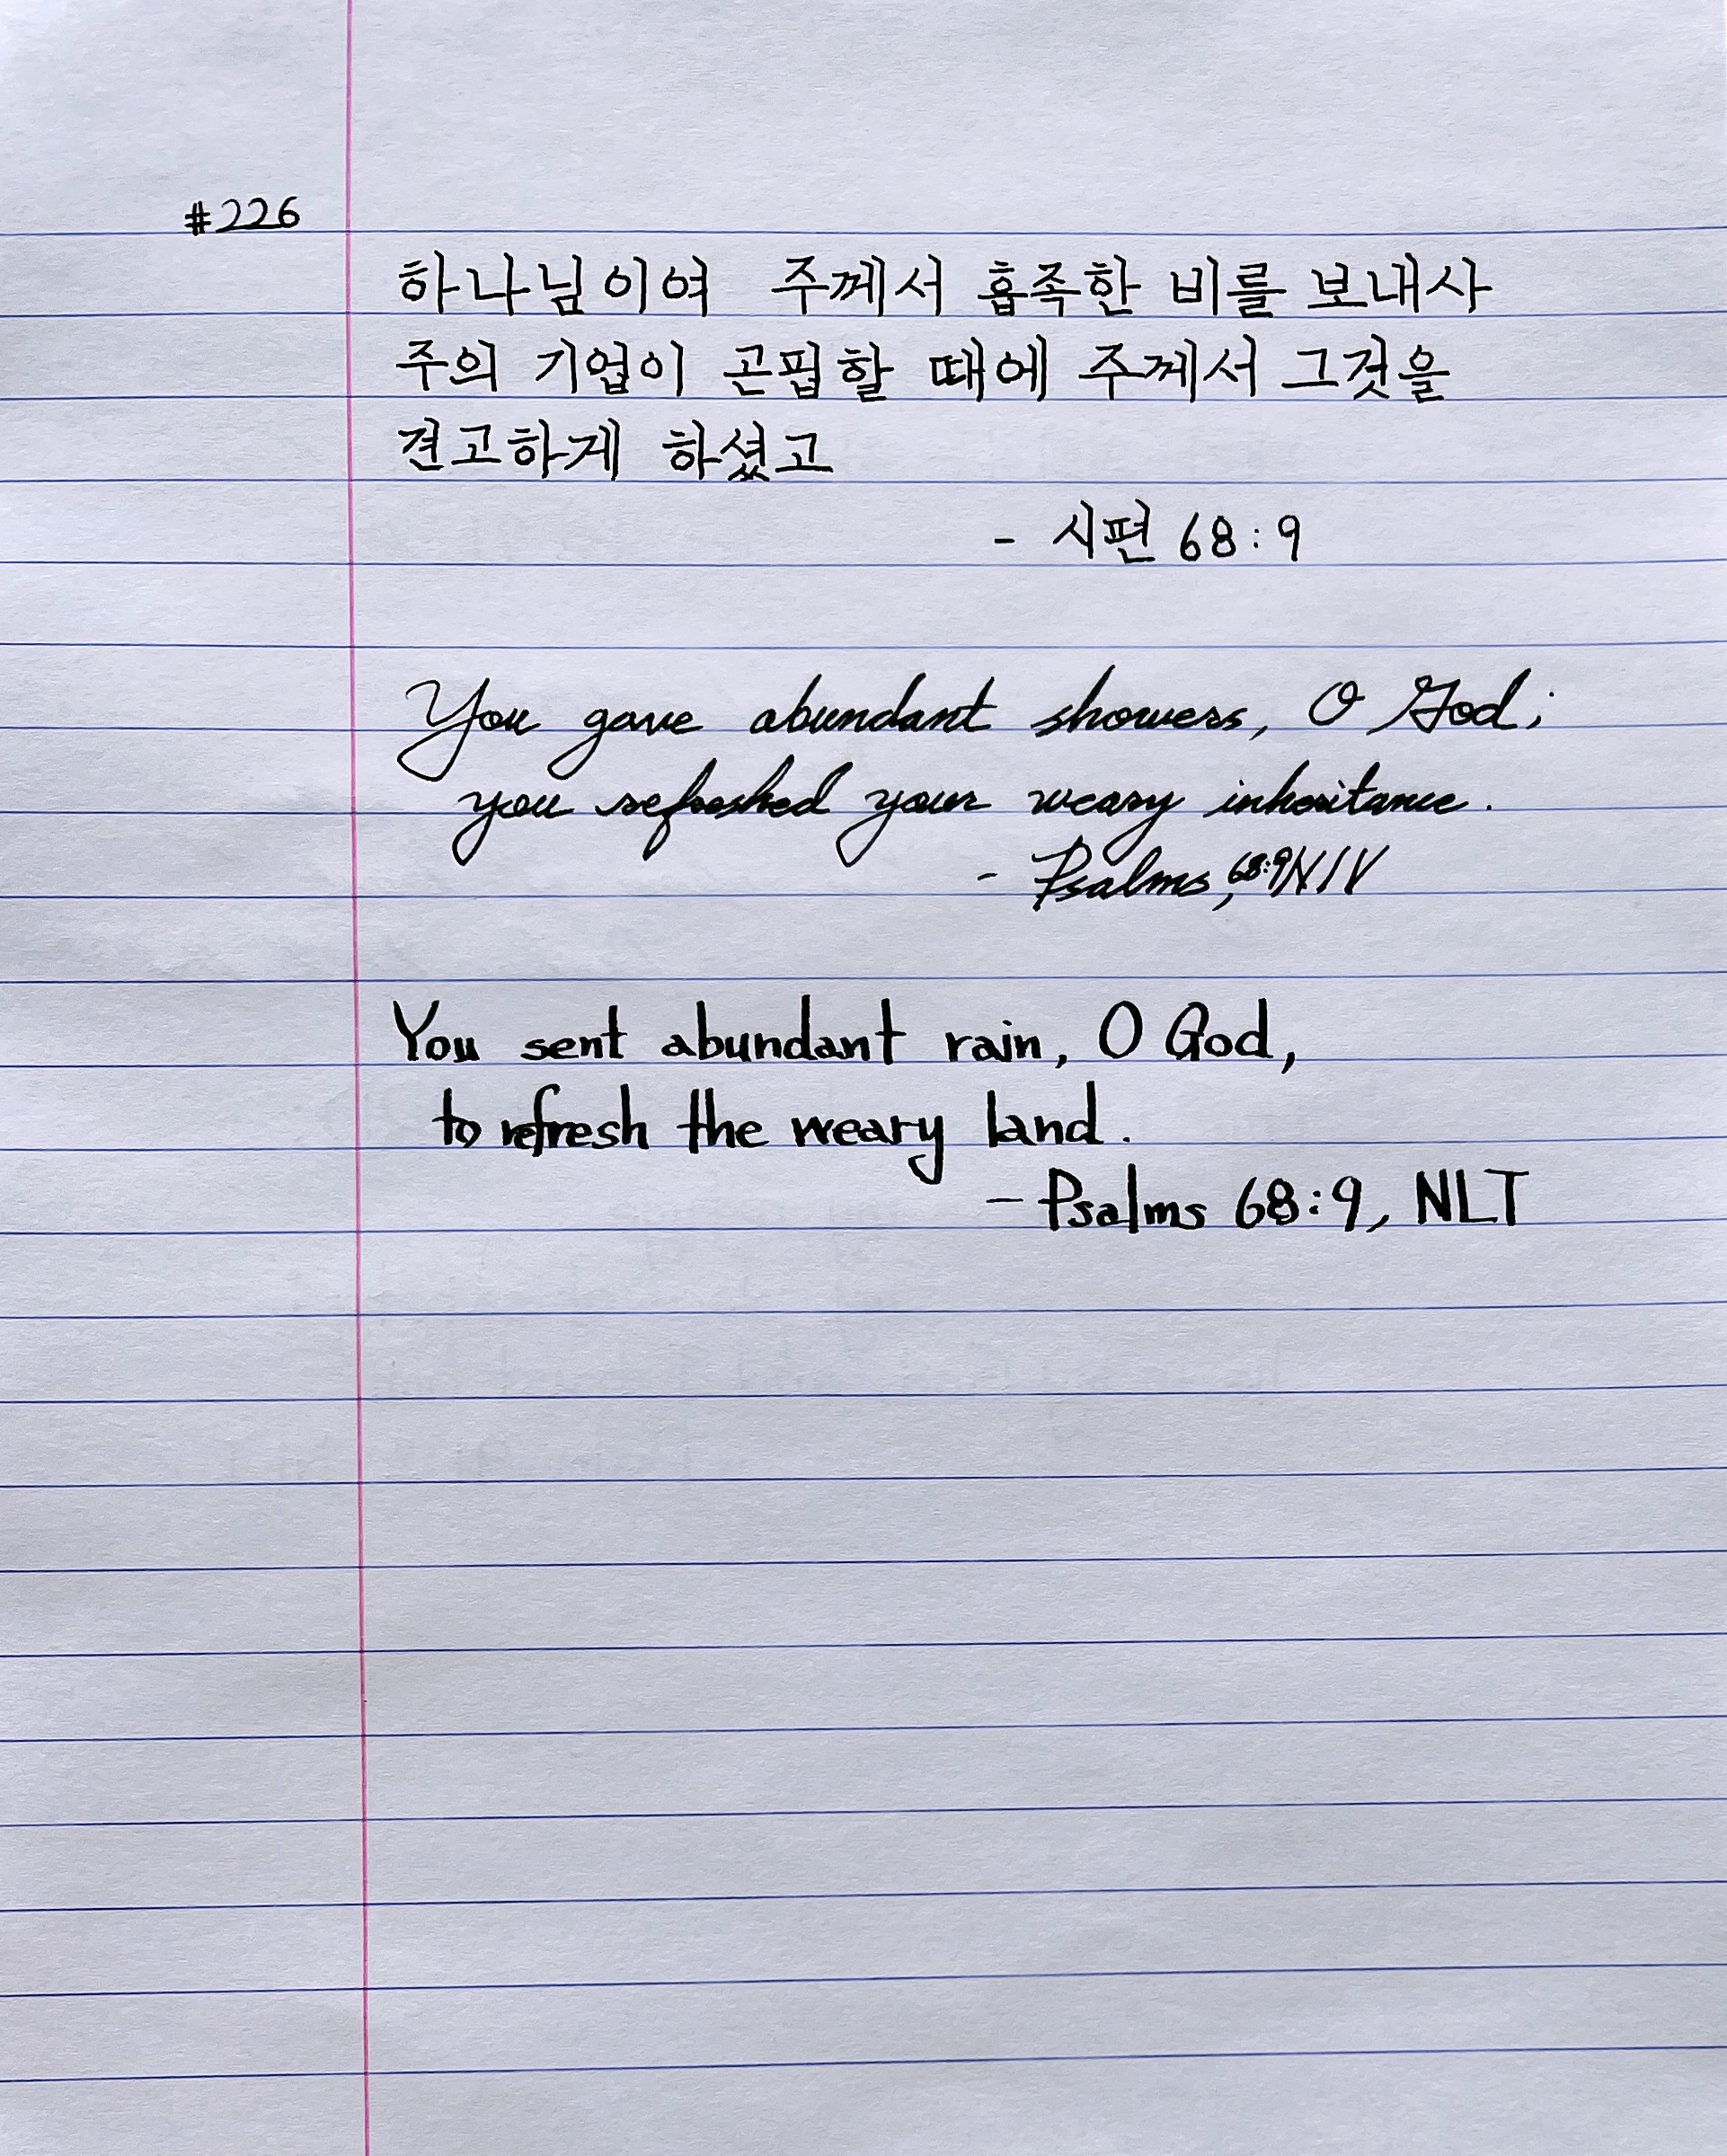 #226
하나님이여 주께서 흡족한 비를 보내사
주의 기업이 곤핍할 때에 주께서 그것을
견고하게 하셨고
- 시편 68:9
You gave abundant showers, O God;
you refreshed your weary inheritance.
- Psalms, 68:9 NIV
You sent abundant rain, O God,
to refresh the weary land.
- Psalms 68:9, NLT